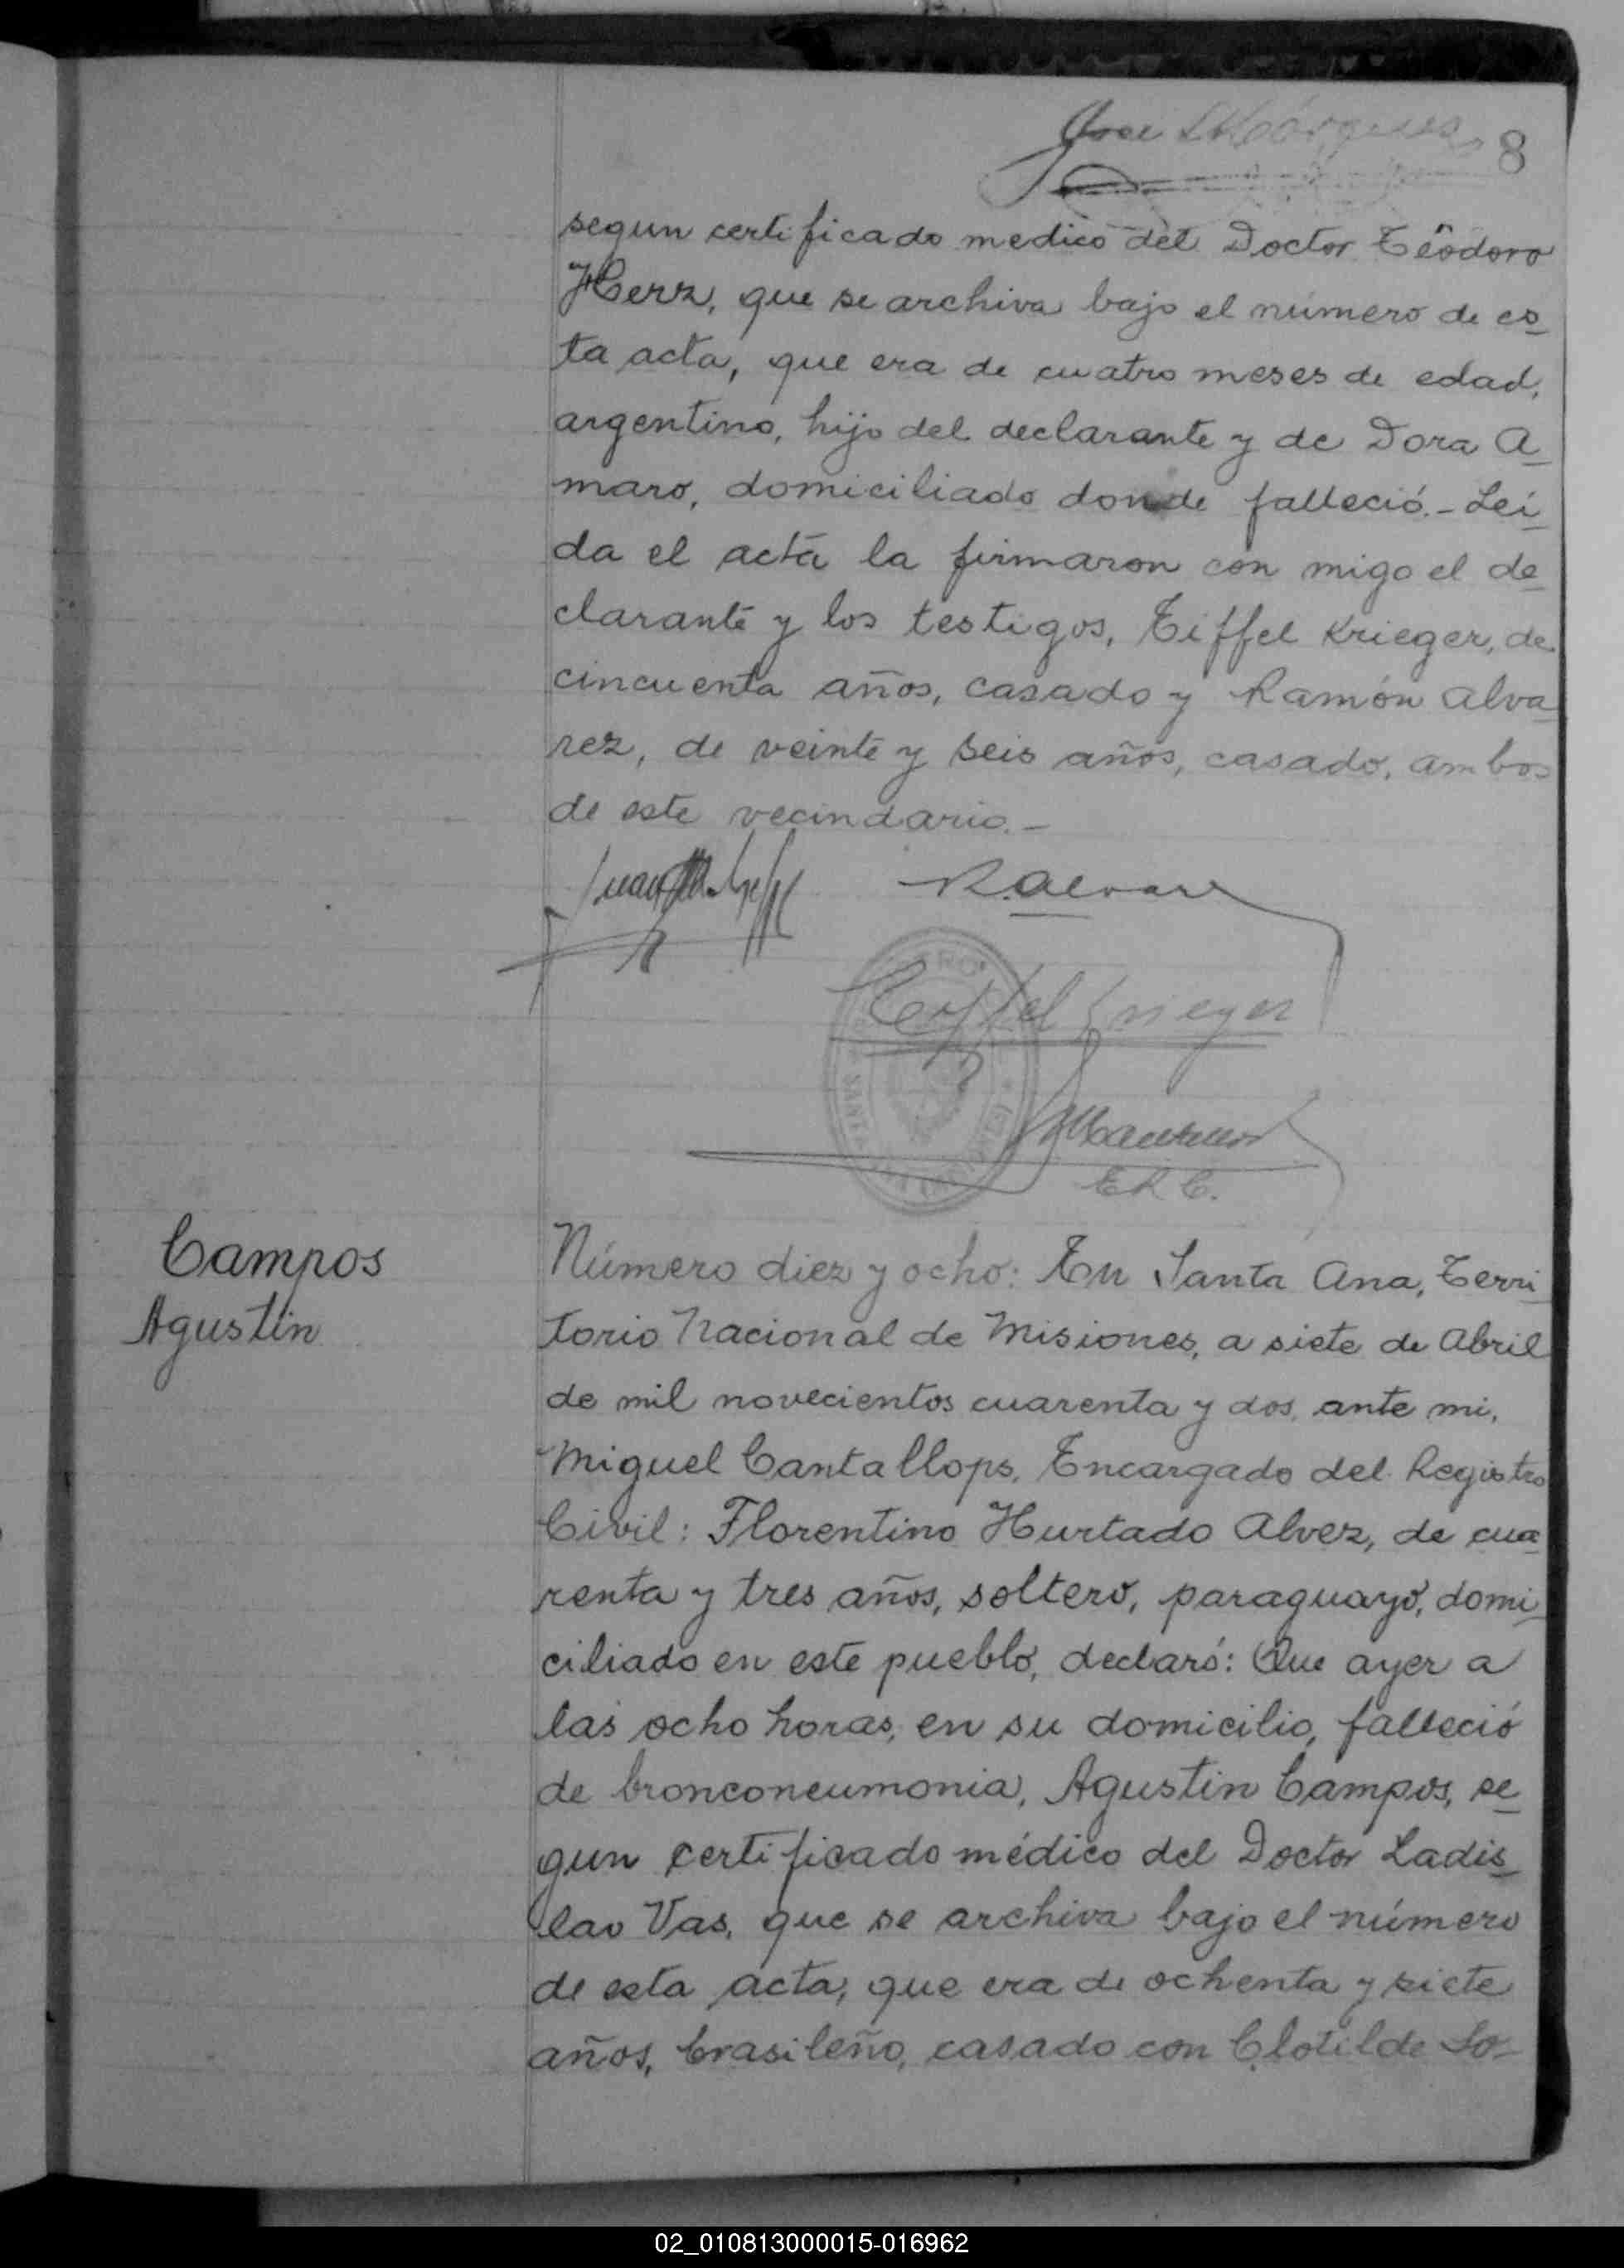 8
segun certificado medico del Doctor Teodoro
Herz, que se archiva bajo el número de es
ta acta, que era de cuatro meses de edad,
argentino, hijo del declarante y de Dora A
maro, domiciliado donde falleció.- Leí
da el acta la firmaron con migo el de
clarante y los testigos, Teiffel Krieger, de
cincuenta años, casado y Ramón Alva
rez, de veinte y seis años, casado, ambos
de este vecindario.-
R. Alvarez
Krieger
E R C.
Campos
Agustin
Número diez y ocho: En Santa Ana, Terri
torio Nacional de Misiones, a siete de Abril
de mil novecientos cuarenta y dos, ante mi,
Miguel Cantallops, Encargado del Registro
Civil: Florentino Hurtado Alvez, de cua
renta y tres años, soltero, paraguayo, domi
ciliado en este pueblo, declaró: Que ayer a
las ocho horas, en su domicilio, falleció
de bronconeumonia, Agustin Campos, se
gun certificado médico del Doctor Ladis
lao Vas, que se archiva bajo el número
de esta acta, que era de ochenta y siete
años, brasileño, casado con Clotilde So-
02_010813000015-016962